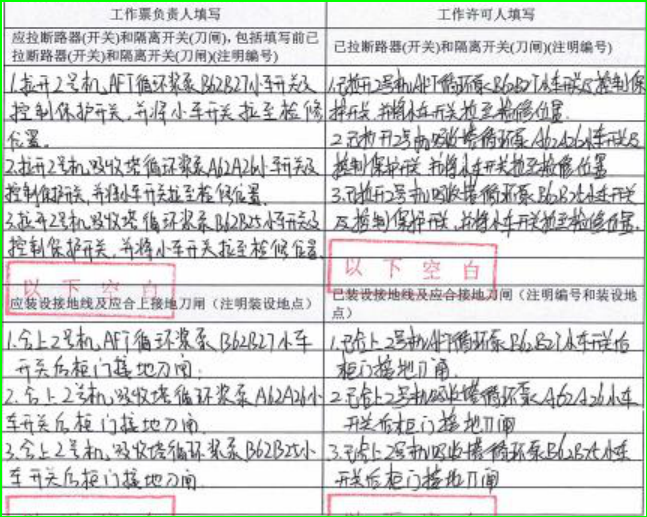 工作票负责人填写
工作许可人填写
应拉断路器(开关)和隔离开关(刀闸),包括填写前已
拉断路器(开关)和隔离开关(刀闸)(注明编号)
已拉断路器(开关)和隔离开关(刀闸)(注明编号)
1.拉开2号机AFT循环浆泵B62B27小车开关及
控制保护开关,并将小车开关拉至检修
位置。
2.拉开2号机吸收塔循环浆泵A62A26小车开关及
控制保护开关,并将小车开关拉至检修位置.
3.拉开2号机吸收塔循环浆泵B62B25小车开关及
控制保护开关,并将小车开关拉至检修位置.
以下空白
1.已拉开2号机AFT循环泵B62B27小车开关及控制保
护开关,并将小车开关拉至检修位置.
2.已拉开2号机吸收塔循环泵A62A26小车开关及
控制保护开关,并将小车开关拉至检修位置
3.已拉开2号机吸收塔循环泵B62B25小车开关
及控制保护开关,并将小车开关拉至检修位置.
以下空白
应装设接地线及应合上接地刀闸(注明装设地点)
已装设接地线及应合接地刀闸(注明编号和装设地
点)
1.合上2号机AFT循环浆泵B62B27小车
开关后柜门接地刀闸.
2.合上2号机吸收塔循环浆泵A62A26小
车开关后柜门接地刀闸.
3.合上2号机吸收塔循环浆泵B62B25小
车开关后柜门接地刀闸.
1.已合上2号机AFT循环泵B62B27小车开关后
柜门接地刀闸.
2.已合上2号机吸收塔循环泵A62A26小车
开关后柜门接地刀闸
3.已合上2号机吸收塔循环泵B62B25小车
开关后柜门接地刀闸